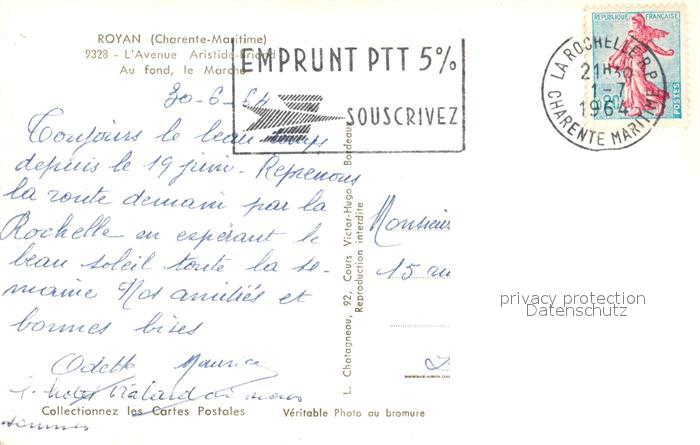 ROYAN (Charente-Maritime)
9328 - L'Avenue Aristide-Briand
Au fond, le Marché
EMPRUNT PTT 5%
SOUSCRIVEZ
REPUBLIQUE FRANÇAISE
POSTES
LA ROCHELLE R.P.
21H30
1-7
1964
CHARENTE MARITIME
30-6-64
Toujours le beau temps
depuis le 19 juin. Reprenons
la route demain par la
Rochelle en espérant le
beau soleil toute la se-
maine Nos amitiés et
bonnes bises
Odette Maurice
hotel où nous
sommes
Monsieur
15 ru
L. Chatagneau, 92, Cours Victor-Hugo Bordeaux
Reproduction interdite
privacy protection
Datenschutz
Collectionnez les Cartes Postales
Véritable Photo au bromure